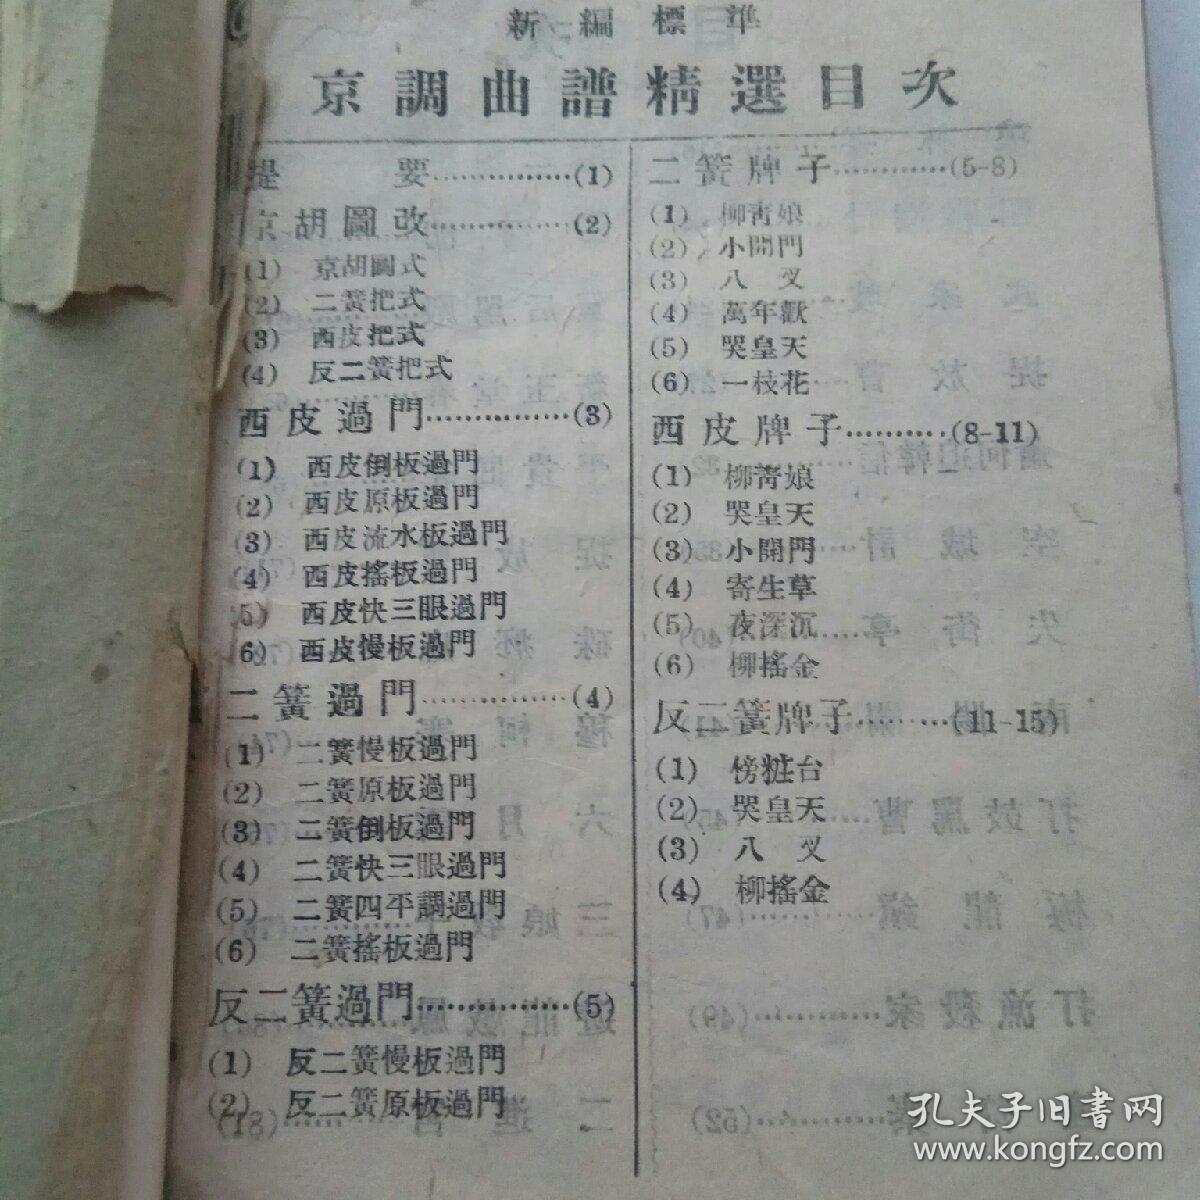 新編標準
京調曲譜精選目次
提要……………(1)
京胡圖改……………(2)
(1) 京胡圖式
(2) 二簧把式
(3) 西皮把式
(4) 反二簧把式
西皮過門……………(3)
(1) 西皮倒板過門
(2) 西皮原板過門
(3) 西皮流水板過門
(4) 西皮搖板過門
(5) 西皮快三眼過門
(6) 西皮慢板過門
二簧過門……………(4)
(1) 二簧慢板過門
(2) 二簧原板過門
(3) 二簧倒板過門
(4) 二簧快三眼過門
(5) 二簧四平調過門
(6) 二簧搖板過門
反二簧過門……………(5)
(1) 反二簧慢板過門
(2) 反二簧原板過門
二簧牌子…………(5-8)
(1) 柳靑娘
(2) 小開門
(3) 八叉
(4) 萬年歡
(5) 哭皇天
(6) 一枝花
西皮牌子…………(8-11)
(1) 柳靑娘
(2) 哭皇天
(3) 小開門
(4) 寄生草
(5) 夜深沉
(6) 柳搖金
反二簧牌子…………(11-15)
(1) 傍粧台
(2) 哭皇天
(3) 八叉
(4) 柳搖金
孔夫子旧书网
www.kongfz.com